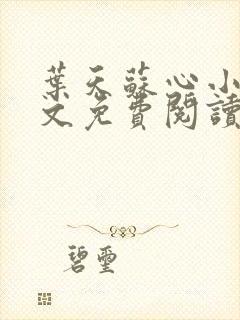 葉天蘇心小
文免費閱讀
碧璽